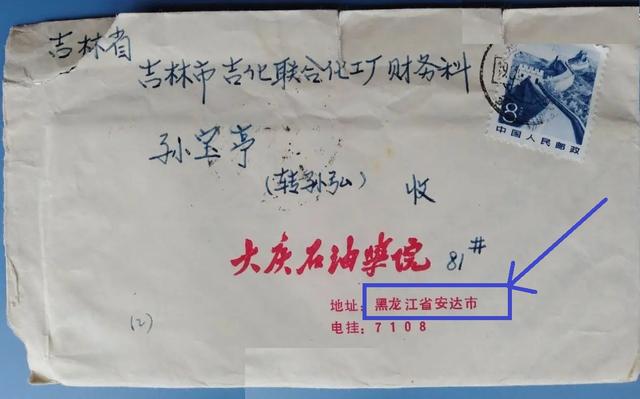 吉林省
吉林市吉化联合化工厂财务科
孙宝亭
(转孙弘) 收
8
中国人民邮政
大庆石油学院 81#
地址: 黑龙江省安达市
电挂: 7108
(2)